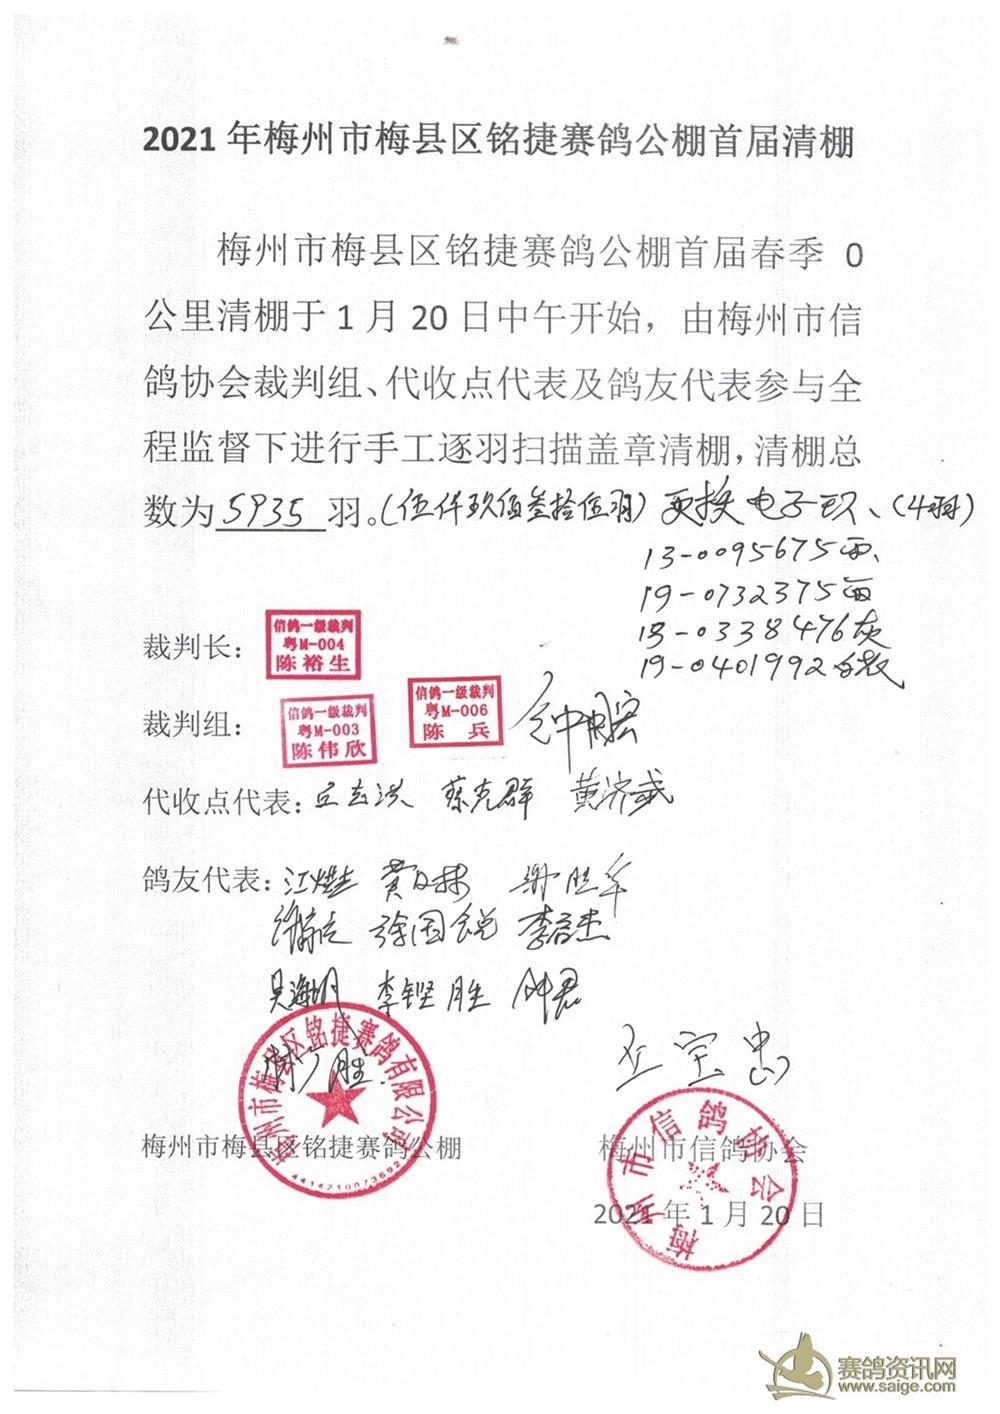 2021 年梅州市梅县区铭捷赛鸽公棚首届清棚
梅州市梅县区铭捷赛鸽公棚首届春季 0
公里清棚于 1 月 20 日中午开始，由梅州市信
鸽协会裁判组、代收点代表及鸽友代表参与全
程监督下进行手工逐羽扫描盖章清棚，清棚总
数为 5935 羽。(伍仟玖佰叁拾伍羽) 更换电子环、(4羽)
13-0095675雨、
19-0732375雨
0338476灰
19-0401992
裁判长：
信鸽一级裁判
粤M-004
陈裕生
裁判组：
信鸽一级裁判
粤M-003
陈伟欣
信鸽一级裁判
粤M-006
陈 兵
代收点代表： 蔡克群 黄济武
鸽友代表：
徐国锐 李
吴海明 李铿胜 钟君
梅州市梅县区铭捷赛鸽有限公司
梅州市梅县区铭捷赛鸽公棚
宝忠
梅州市信鸽协会
梅州市信鸽协会
2021 年 1 月 20 日
赛鸽资讯网
www.saige.com